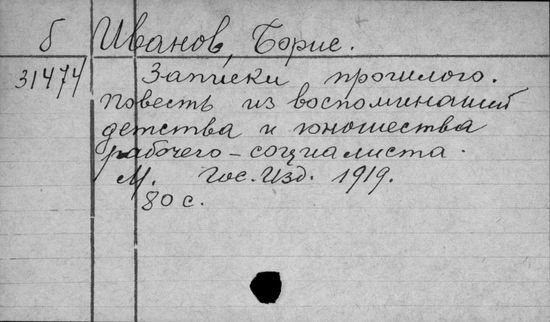 б Иванов, Борис.
31474 Записки прошлого.
Повесть из воспоминаний
детства и юношества
рабочего-социалиста.
М. Гос. Изд. 1919.
80 с.